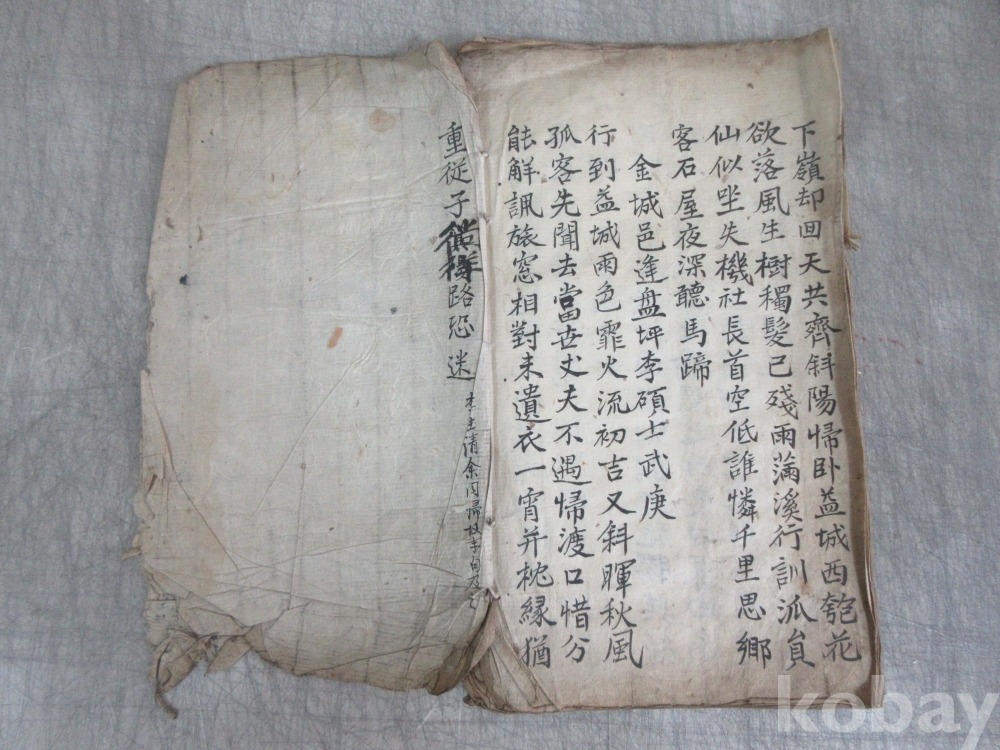 下嶺却回天共齊斜陽帰卧益城西匏花
欲落風生樹穉髮已殘雨滿溪行訓派負
仙似坐失機社長首空低誰憐千里思鄉
客石屋夜深聽馬蹄
金城邑逢盘坪李碩士武庚
行到益城雨色霏火流初吉又斜暉秋風
孤客先聞去當世丈夫不遇帰渡口惜分
能解諷旅窓相對未遺衣一宵并枕緣猶
重從子 路恐迷
李 請余同帰故末句及之
kobay